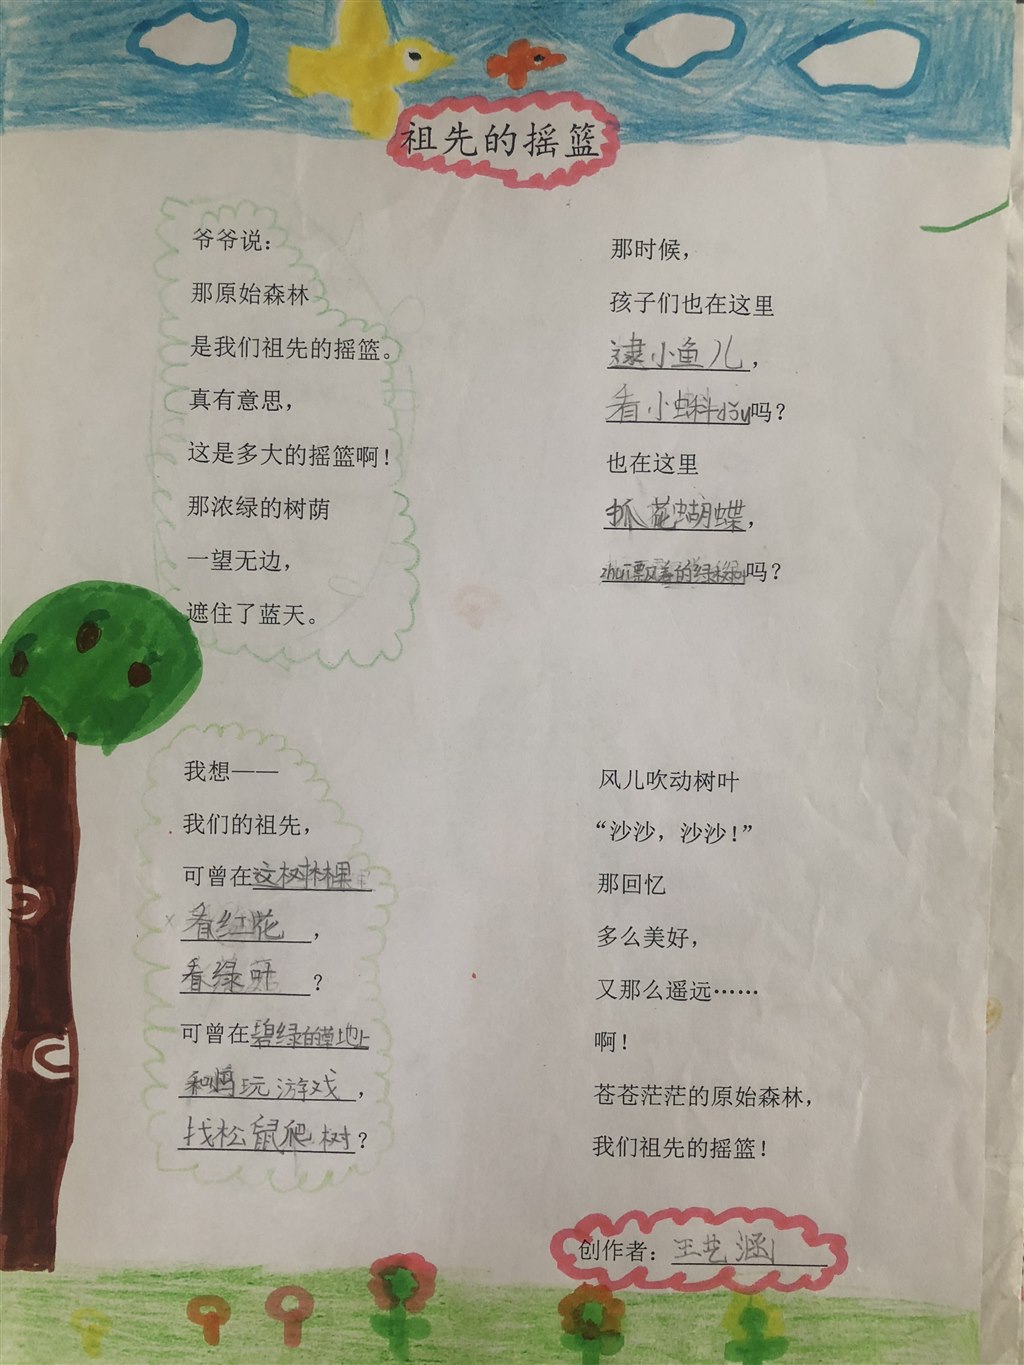 祖先的摇篮
爷爷说：
那原始森林
是我们祖先的摇篮。
真有意思，
这是多大的摇篮啊！
那浓绿的树荫
一望无边，
遮住了蓝天。
我想——
我们的祖先，
可曾在这树林里
看红花，
看绿叶？
可曾在碧绿的草地上
和鸡玩游戏，
找松鼠爬树？
那时候，
孩子们也在这里
逮小鱼儿，
看小蝌蚪游吗？
也在这里
抓花蝴蝶，
zhuī飘落的绿树叶吗？
风儿吹动树叶
“沙沙，沙沙！”
那回忆
多么美好，
又那么遥远……
啊！
苍苍茫茫的原始森林，
我们祖先的摇篮！
创作者：王艺涵